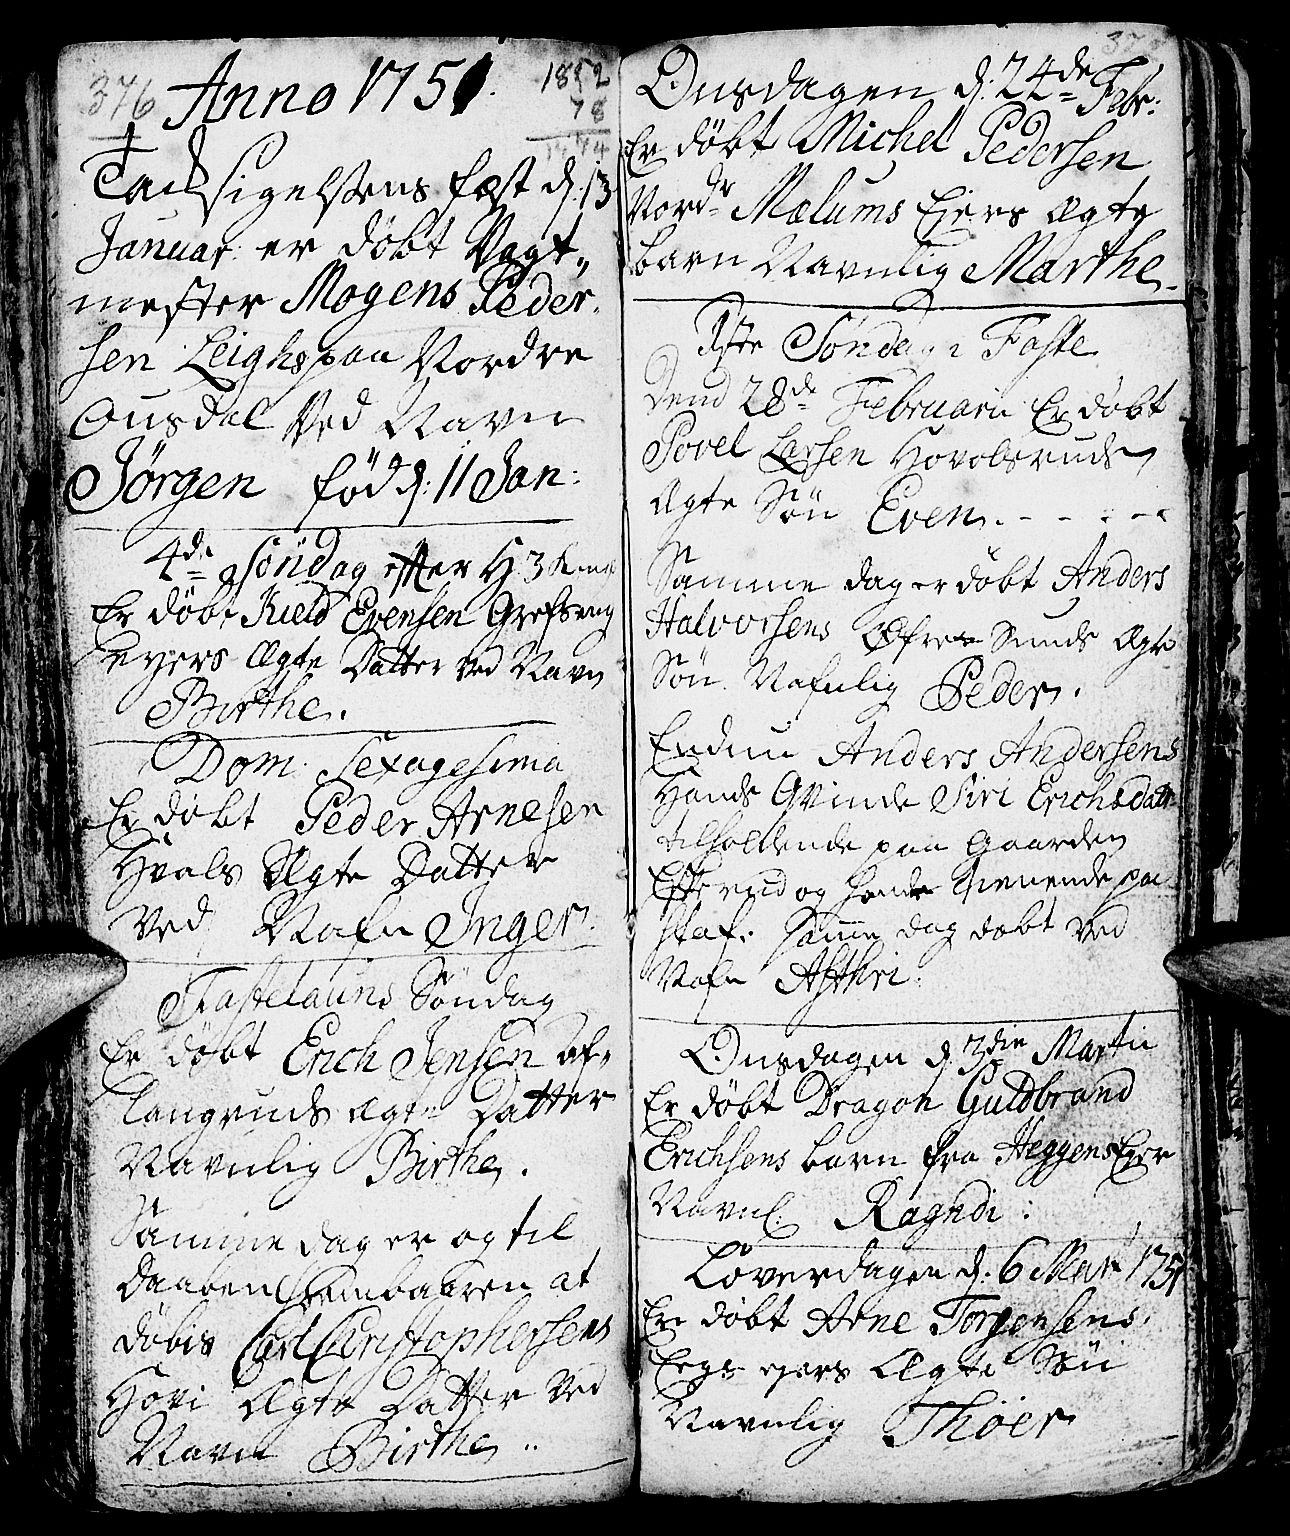 376 Anno 1751. 1852
78
1774
Tacksigelsens fæst d. 13
Januar: er döbt Vagt„
mester Mogens Peder„
sen Leighs paa Nordre
Ousdal Ved Navn
Jörgen föd d: 11 Jan:
4de Söndag efter H 3
Er döbt Kield Evensen Grefsrug
Eyers Ægte Datter ved Navn
Birthe.
Dom. Sexagesima
Er döbt Peder Arnesen
Hvals Ægte Datter
Ved Nafn Inger.
Fastelauns Söndag
Er döbt Erich Jensen Af„
langruds Ægte Datter
Navnlig Birthe.
Samme dag er og til
Daaben frembaaren at
döbes Carl Christophersens
Hovi Ægte Datter Ved
Navn Birthe ..
Onsdagen d. 24de Febr:
Er döbt Michel Pedersen
Nordr Mælums Eiers Ægte
barn Navnlig Marthe.
1ste Söndag i Faste
Dend 28de Februarii Er döbt
Povel Larsen Hovolsruds
Ægte Sön Even.
Samme dag er döbt Anders
Halvorsens Öfre Sunds Ægte
Sön Nafnlig Peder.
Endnu Anders Andersens
Hands Qvinde Siri Erichsdatter
tilholdende paa Gaarden
og hand tienende paa
samme dag döbt ved
Nafn Asthri.
Onsdagen d. 3die Martii
Er döbt Dragon Guldbrand
Erichsens barn fra Heggens Eier
Navnl: Ragndi.
Löverdagen d. 6 Mart 1751
Er döbt Arne Torgersens.
ejers Ægte Sön
Navnlig Thoer